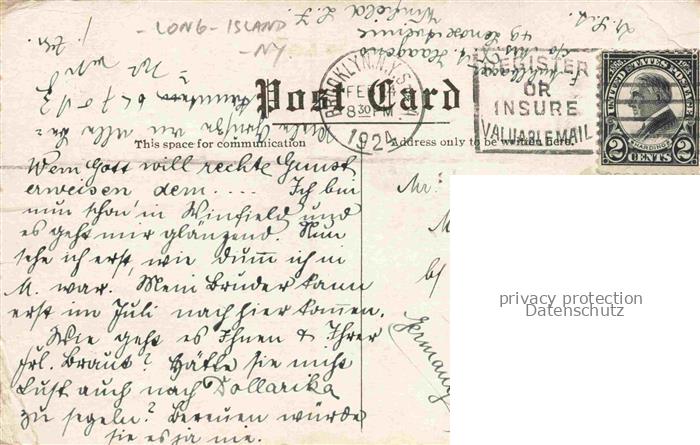 - LONG - ISLAND -
- NY -
Winfield L. I.
BROOKLYN, N.Y.
FEB
8 30 PM
1924
REGISTER
OR
INSURE
VALUABLE MAIL
UNITED STATES POSTAGE
HARDING
2 CENTS 2
Post Card
This space for communication
Address only to be written here.
Wem Gott will rechte Gunst
erweisen dem .... Ich bin
nun schon in Winfield und
es geht mir glänzend. Nun
sehe ich erst, wie dumm ich in
M. war. Mein Bruder kann
erst im Juli nach hier kommen.
Wie geht es Ihnen & Ihrer
Frl. Braut? Hätte sie nicht
Lust auch nach Dollarika
zu segeln? Bereuen würde
sie es ja nie.
Viele Grüße an alle
Mr.
M
b/
Germany
privacy protection
Datenschutz